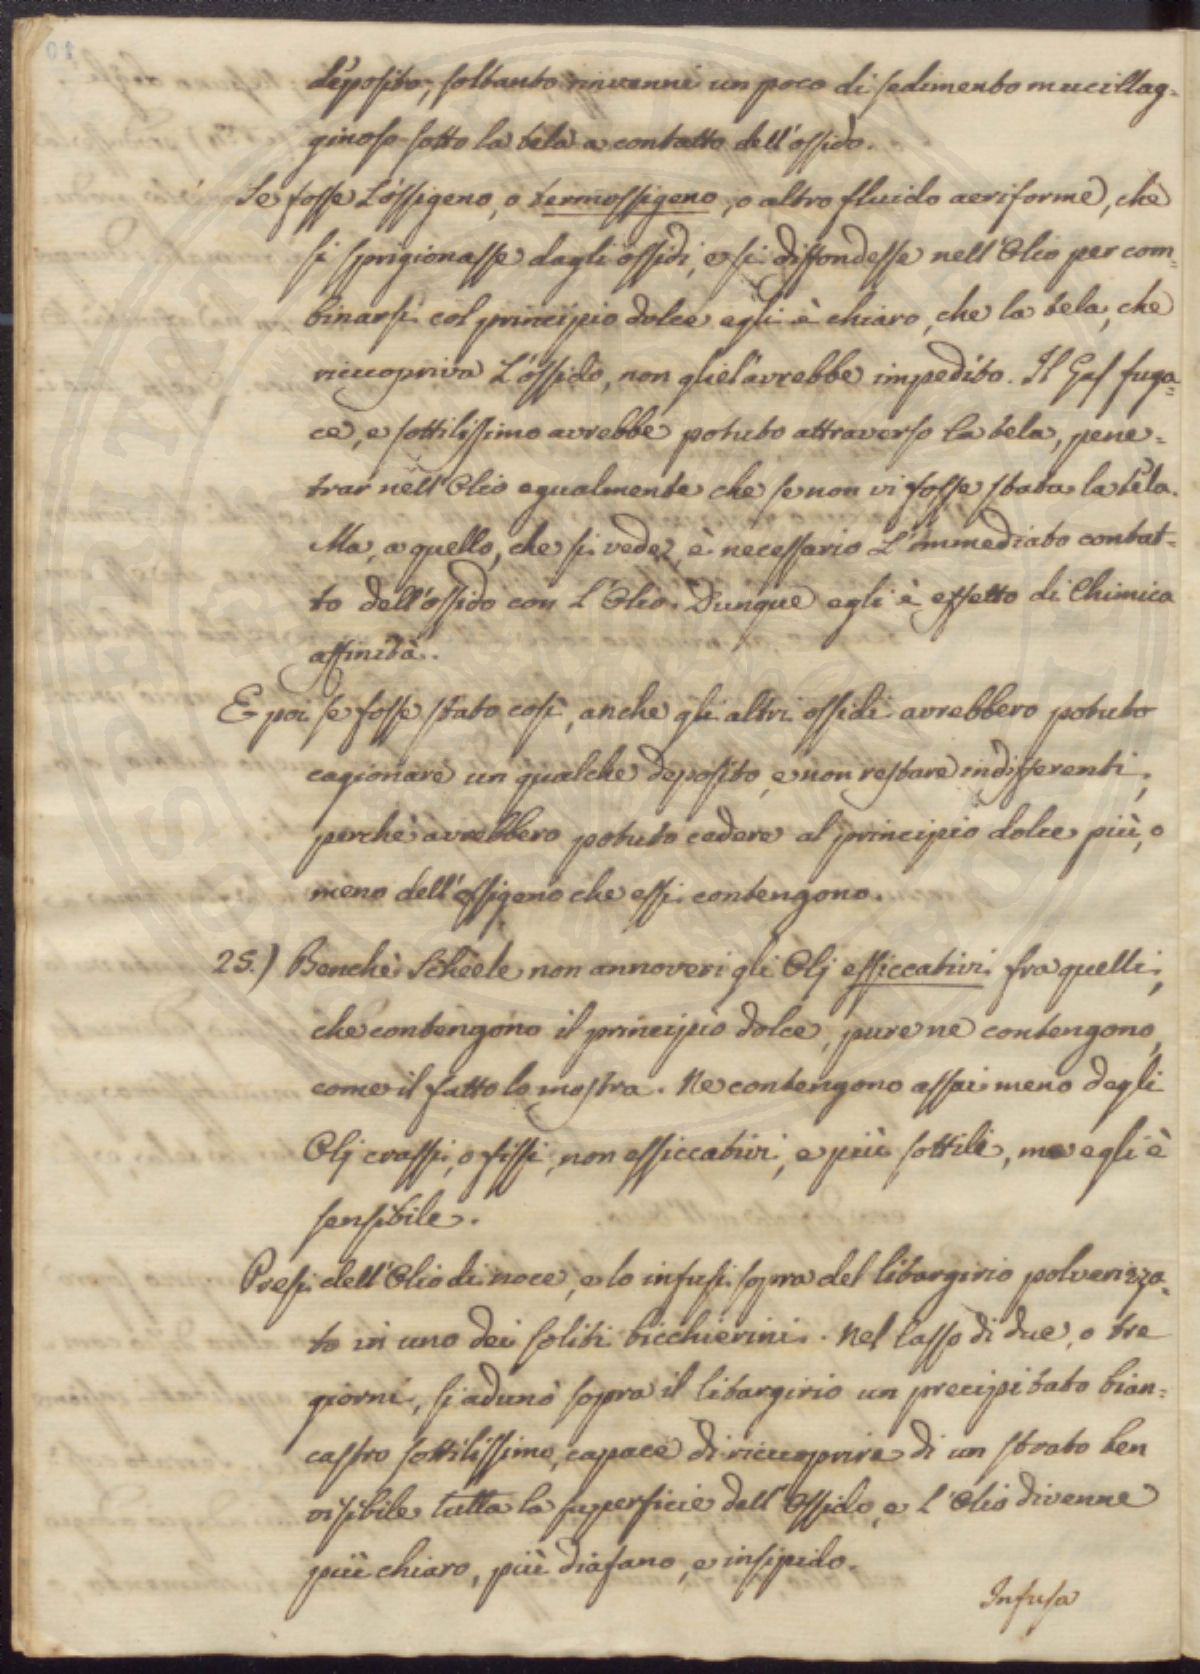 deposito; soltanto rinvenni un poco di sedimento mucillag-
ginoso sotto la tela a contatto dell'ossido.
Se fosse L'ossigeno, o termossigeno, o altro fluido aeriforme, che
si sprigionasse dagli ossidi, e si diffondesse nell'Olio per com=
binarsi col principio dolce egli è chiaro, che la tela, che
riccopriva L'ossido, non gliel'avrebbe impedito. Il Gas fuga=
ce, e sottilissimo avrebbe potuto attraverso la tela, pene=
trar nell'Olio egualmente che se non vi fosse stata la tela.
Ma, a quello, che si vede, è necessario L'immediato contat=
to dell'ossido con L'Olio. Dunque egli è effetto di Chimica
affinità.
E poi se fosse stato così, anche gli altri ossidi avrebbero potuto
cagionare un qualche deposito, e non restare indifferenti;
perchè avrebbero potuto cedere al principio dolce più, o
meno dell'ossigeno che essi contengono.
25.) Benchè Schèele non annoveri gli Olj essiccativi fra quelli,
che contengono il principio dolce, pure ne contengono,
come il fatto lo mostra. Ne contengono assai meno degli
Olj crassi, o fissi, non essiccativi, e più sottile, ma egli è
sensibile.
Presi dell'Olio di noce, e lo infusi sopra del litargirio polverizza=
to in uno dei soliti bicchierini. Nel lasso di due, o tre
giorni, si adunò sopra il litargirio un precipitato bian=
castro sottilissimo, capace di riccoprire di un strato ben
visibile tutta la superficie dell'Ossido, e l'Olio divenne
più chiaro, più diafano, e insipido.
Infusa